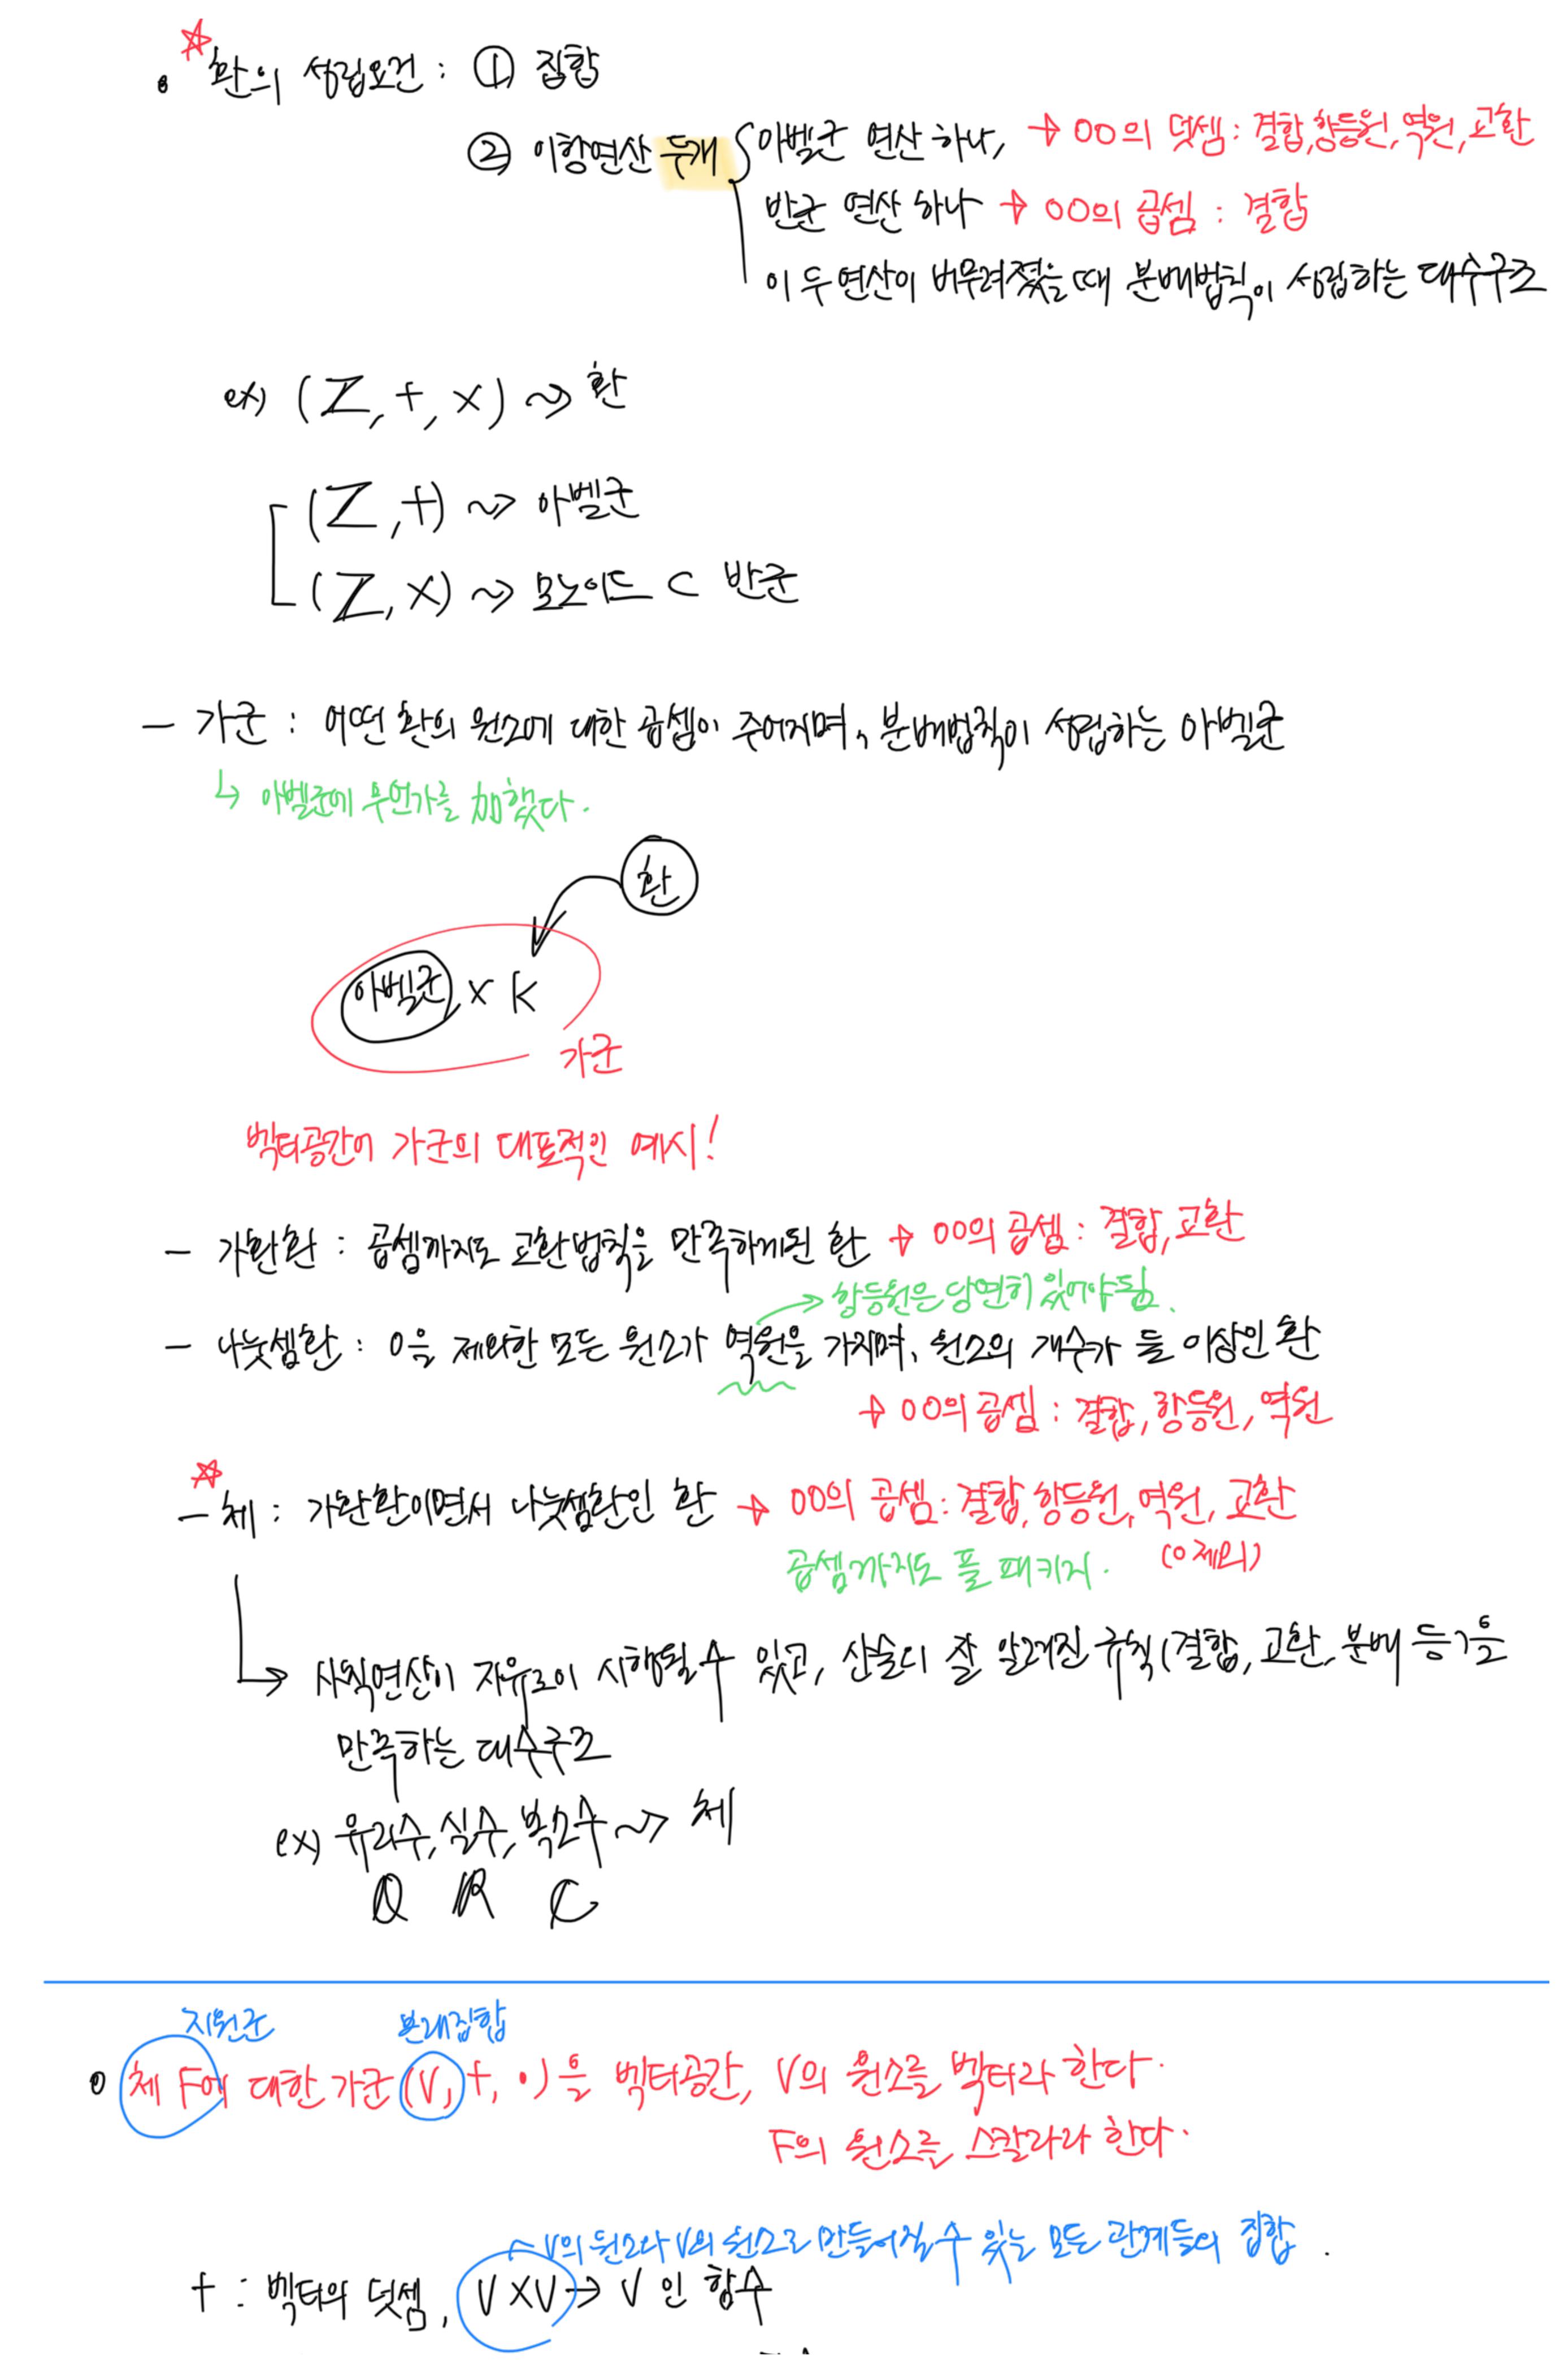 ☆
• 환의 성립요건 : ① 집합
② 이항연산 두개 { 아벨군 연산 하나, → OO의 덧셈 : 결합, 항등원, 역원, 교환
반군 연산 하나 → OO의 곱셈 : 결합
이 두 연산이 버무려졌을 때 분배법칙이 성립하는 대수구조
ex) (Z, +, ×) ⇝ 환
(Z, +) ⇝ 아벨군
(Z, ×) ⇝ 모노이드 ⊂ 반군
- 가군 : 어떤 환의 원소에 대한 곱셈이 주어지며, 분배법칙이 성립하는 아벨군
↳ 아벨군에 무언가를 加했다.
환
아벨군 × K
가군
벡터공간이 가군의 대표적인 예시!
- 가환환 : 곱셈까지도 교환법칙을 만족하게된 환 → OO의 곱셈 : 결합, 교환
→ 항등원은 당연히 있어야됨.
- 나눗셈환 : 0을 제외한 모든 원소가 역원을 가지며, 원소의 개수가 둘 이상인 환
→ OO의 곱셈 : 결합, 항등원, 역원
☆
- 체 : 가환환이면서 나눗셈환인 환 → OO의 곱셈 : 결합, 항등원, 역원, 교환
곱셈까지도 풀 패키지. (0 제외)
↳ 사칙연산이 자유로이 시행될 수 있고, 산술의 잘 알려진 규칙(결합, 교환, 분배 등)을
만족하는 대수구조
ex) 유리수, 실수, 복소수 ⇝ 체
Q R C
지원군 본래집합
• 체 F에 대한 가군 (V, +, •)을 벡터공간, V의 원소를 벡터라 한다.
F의 원소를 스칼라라 한다.
~V의 원소와 V의 원소로 만들어질 수 있는 모든 관계들의 집합.
+ : 벡터의 덧셈, V×V → V 인 함수